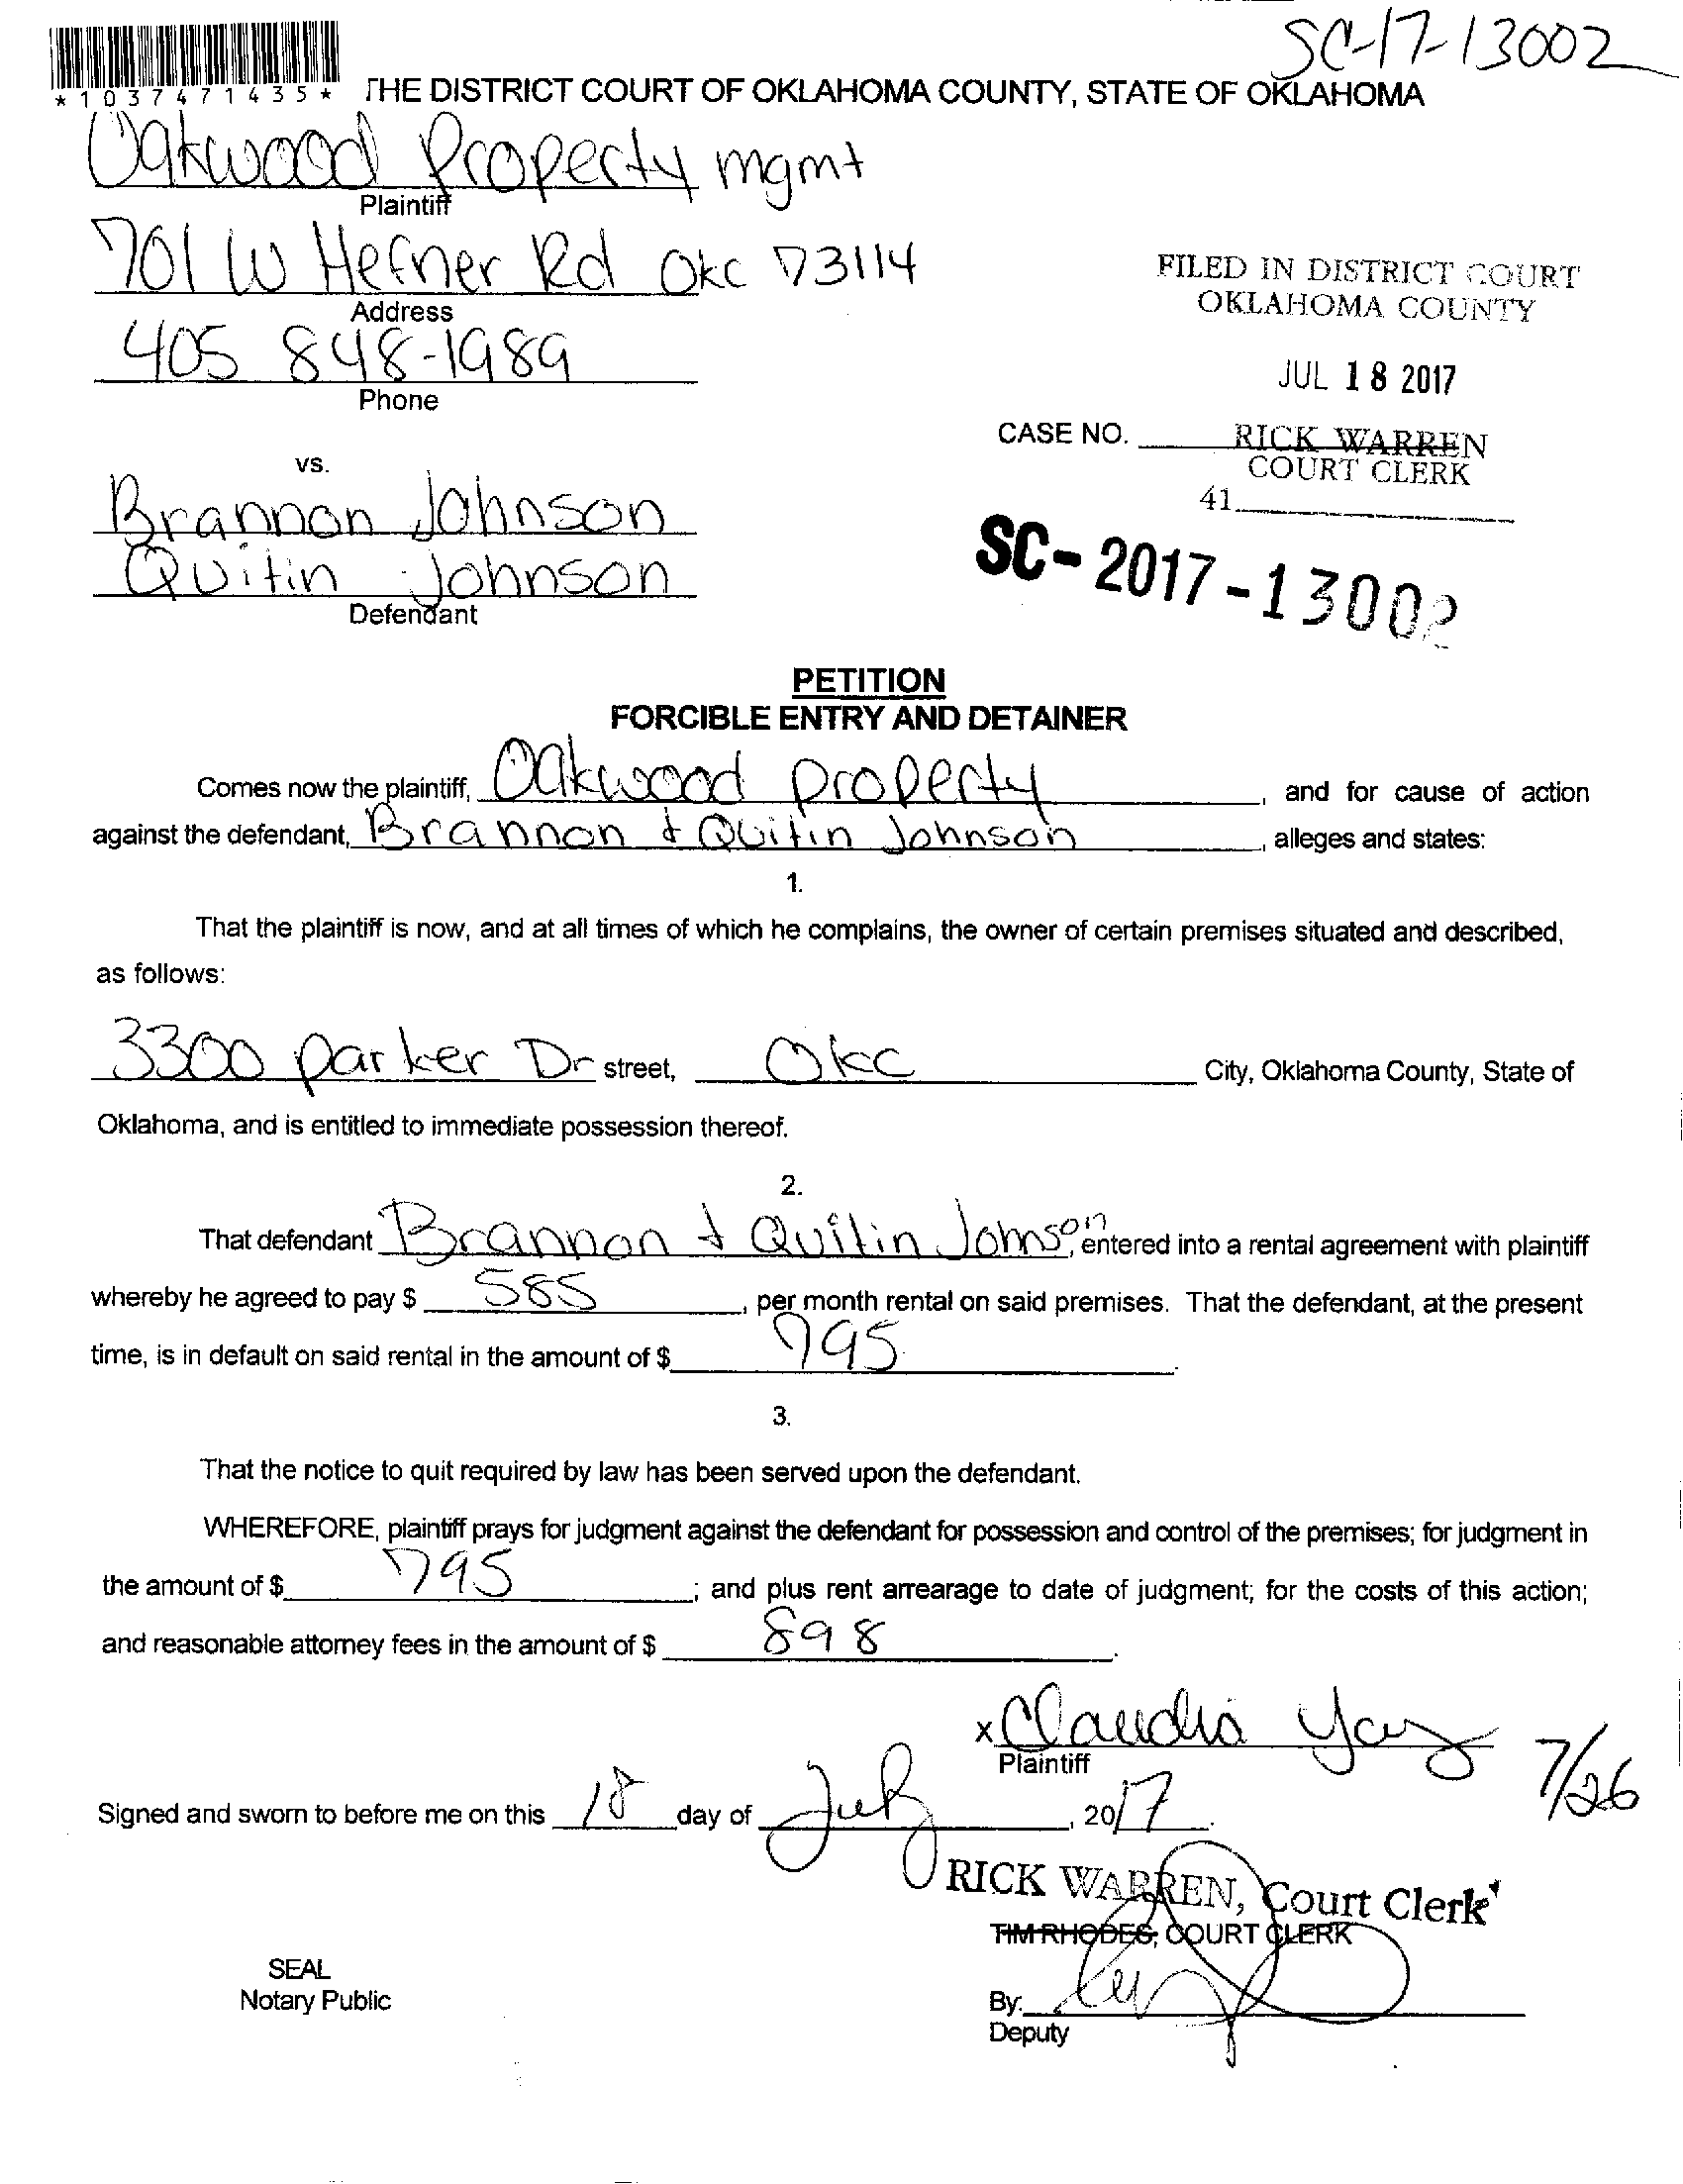 SC-17-13002
*1037471435*
THE DISTRICT COURT OF OKLAHOMA COUNTY, STATE OF OKLAHOMA
Oakwood Property mgmt
Plaintiff
701 W Hefner Rd OKC 73114
Address
405 848-1989
Phone
FILED IN DISTRICT COURT
OKLAHOMA COUNTY
JUL 18 2017
CASE NO. RICK WARREN
COURT CLERK
41
vs.
Brannon Johnson
Quitin Johnson
Defendant
SC-2017-13002
PETITION
FORCIBLE ENTRY AND DETAINER
Comes now the plaintiff, Oakwood Property, and for cause of action
against the defendant, Brannon & Quitin Johnson, alleges and states:
1.
That the plaintiff is now, and at all times of which he complains, the owner of certain premises situated and described,
as follows:
3300 Parker Dr street, OKC City, Oklahoma County, State of
Oklahoma, and is entitled to immediate possession thereof.
2.
That defendant Brannon & Quitin Johnson, entered into a rental agreement with plaintiff
whereby he agreed to pay $ 585, per month rental on said premises. That the defendant, at the present
time, is in default on said rental in the amount of $ 795.
3.
That the notice to quit required by law has been served upon the defendant.
WHEREFORE, plaintiff prays for judgment against the defendant for possession and control of the premises; for judgment in
the amount of $ 795; and plus rent arrearage to date of judgment; for the costs of this action;
and reasonable attorney fees in the amount of $ 898.
x Claudia
Plaintiff
7/26
Signed and sworn to before me on this 18 day of July, 2017.
RICK WARREN, Court Clerk
TIM RHODES, COURT CLERK
SEAL
Notary Public
By:
Deputy